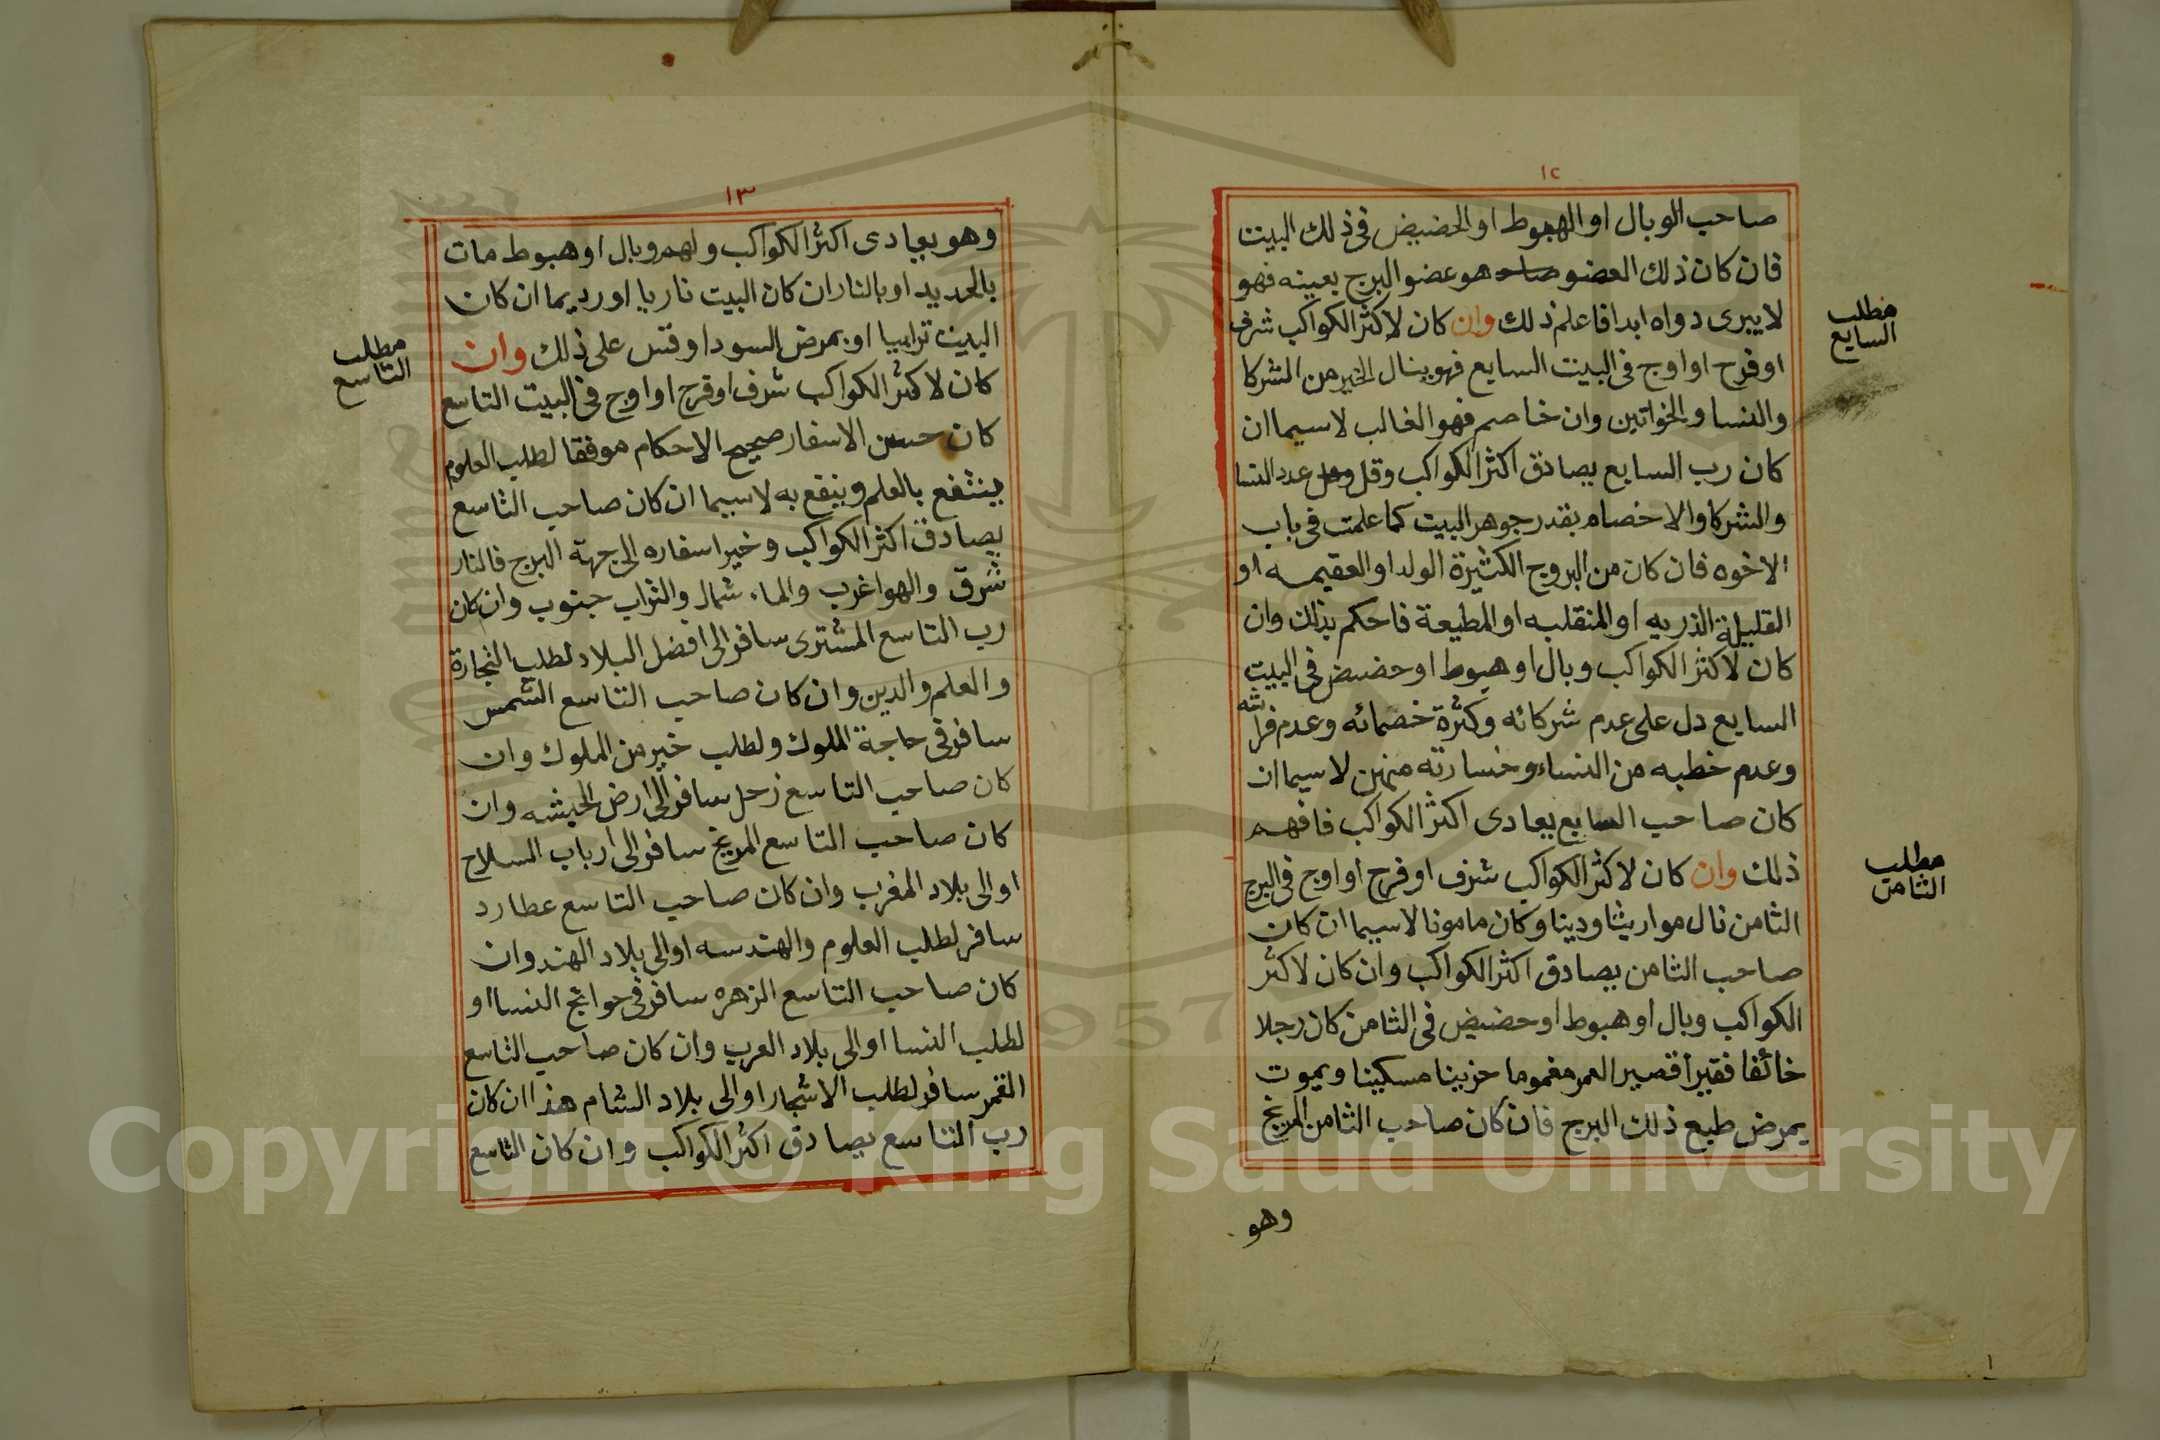 ١٢
صاحب الوبال او الهبوط او الحضيض فى ذلك البيت
فان كان ذلك العضو هو عضو البرج بعينه فهو
لا يبرى دواه ابدا فاعلم ذلك وان كان لاكثر الكواكب شرف
مطلب
السابع
او فرح او اوج فى البيت السابع فهو ينال الخير من الشركا
والنسا والخواتين وان خاصم فهو الغالب لاسيما ان
كان رب السابع يصادق اكثر الكواكب وقل عدد النسا
والشركا والاخصام بقدر جوهر البيت كما علمت فى باب
الاخوه فان كان من البروج الكثيرة الولد او العقيمه او
القليلة الذريه او المنقلبه او المطيعة فاحكم بذلك وان
كان لاكثر الكواكب وبال او هبوط او حضيض فى البيت
السابع دل على عدم شركائه وكثرة خصمائه وعدم فراشه
وعدم خطبه من النساء وخسارته منهن لاسيما ان
كان صاحب السابع يعادى اكثر الكواكب فافهم
ذلك وان كان لاكثر الكواكب شرف او فرح او اوج فى البرج
مطلب
الثامن
الثامن نال مواريثا ودينا وكان مامونا لاسيما ان كان
صاحب الثامن يصادق اكثر الكواكب وان كان لاكثر
الكواكب وبال او هبوط او حضيض فى الثامن كان رجلا
خائفا فقيرا قصير العمر مغموما حزينا مسكينا ويموت
بمرض طبع ذلك البرج فان كان صاحب الثامن المريخ
وهو
١٣
وهو يعادى اكثر الكواكب ولهم وبال او هبوط مات
بالحديد او بالنار ان كان البيت ناريا او رديما ان كان
البيت ترابيا او بمرض السودا وقس على ذلك وان
مطلب
التاسع
كان لاكثر الكواكب شرف او فرح او اوج فى البيت التاسع
كان حسن الاسفار صحيح الاحكام موفقا لطلب العلوم
ينتفع بالعلم وينفع به لاسيما ان كان صاحب التاسع
يصادق اكثر الكواكب وخير اسفاره الى جهة البرج فالنار
شرق والهوا غرب والماء شمال والتراب جنوب وان كان
رب التاسع المشترى سافر الى افضل البلاد لطلب التجارة
والعلم والدين وان كان صاحب التاسع الشمس
سافر فى حاجة الملوك ولطلب خير من الملوك وان
كان صاحب التاسع زحل سافر الى ارض الحبشه وان
كان صاحب التاسع المريخ سافر الى ارباب السلاح
او الى بلاد المغرب وان كان صاحب التاسع عطارد
سافر لطلب العلوم والهندسه او الى بلاد الهند وان
كان صاحب التاسع الزهره سافر فى حوائج النسا او
لطلب النسا او الى بلاد العرب وان كان صاحب التاسع
القمر سافر لطلب الاشجار او الى بلاد الشام هذا ان كان
رب التاسع يصادق اكثر الكواكب وان كان التاسع
1957
Copyright © King Saud University